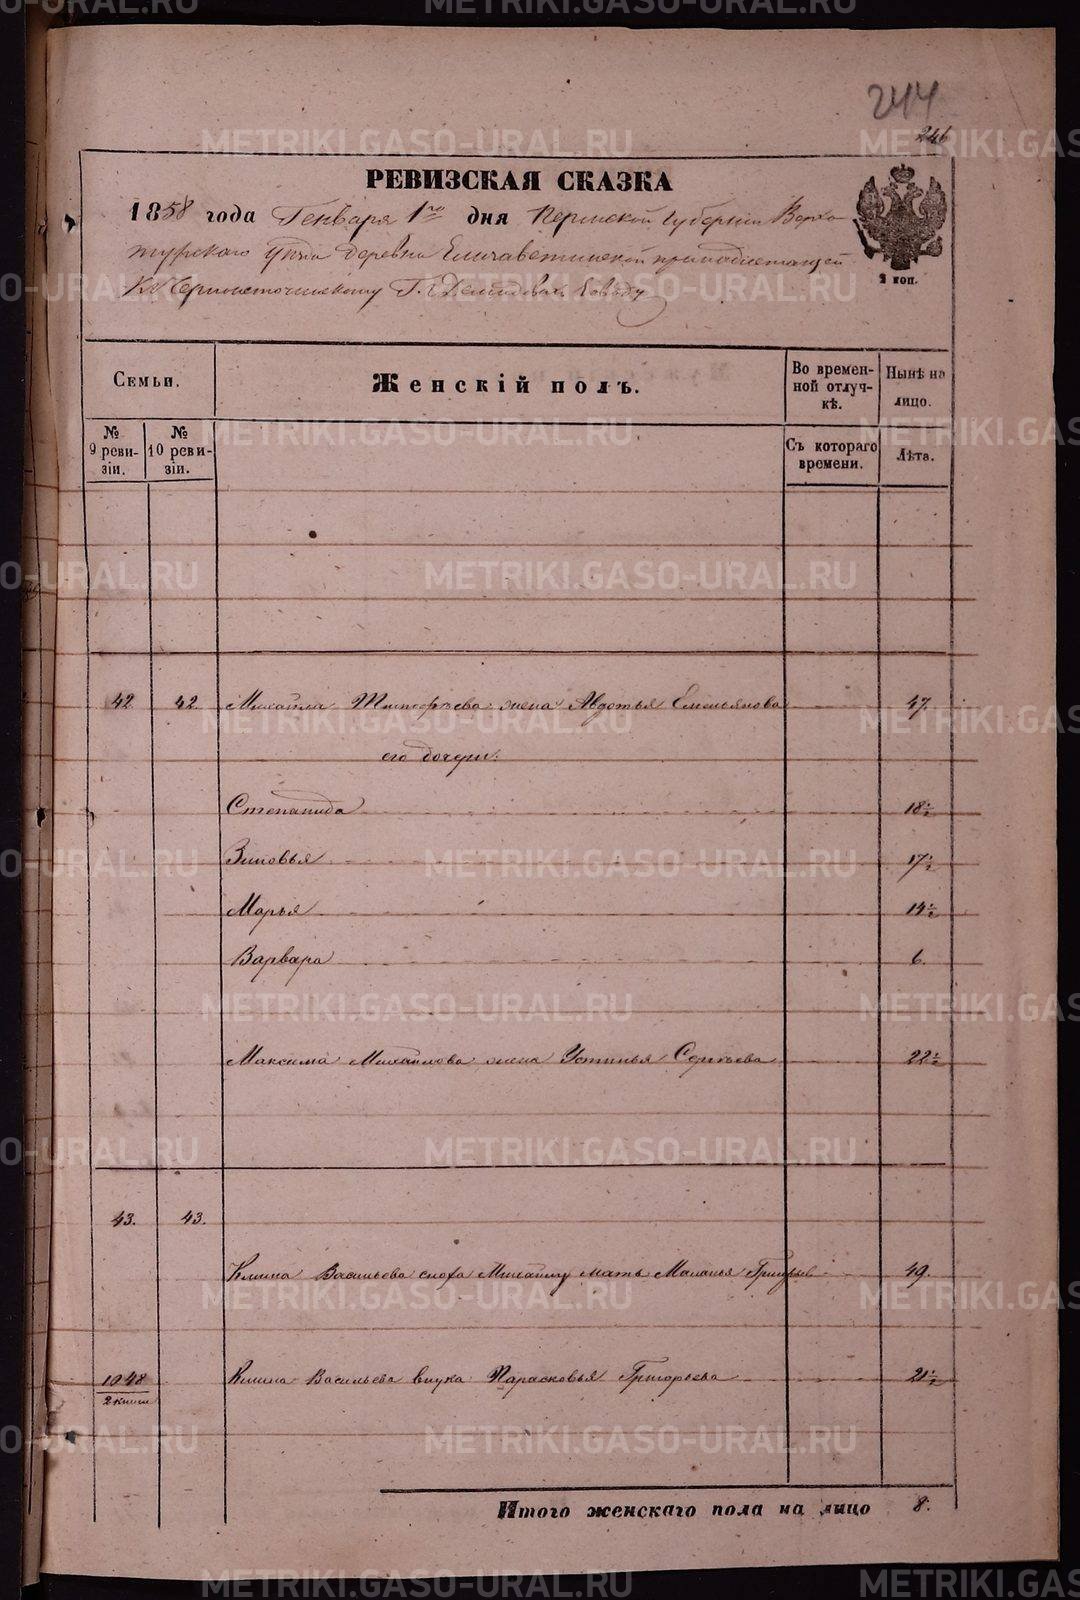 244
246
РЕВИЗСКАЯ СКАЗКА
1858 года Генваря 1го дня Пермской Губернiи Верхо
турскаго Уѣзда Деревни Елисаветинской принадлежащей
Къ Черноисточинскому Г.г. Демидовыхъ Заводу
2 коп.
Семьи.
Женскiй полъ.
Во времен-
ной отлуч-
кѣ.
Нынѣ на
лицо.
№
9 реви-
зiи.
№
10 реви-
зiи.
Съ котораго
времени.
Лѣта.
42 42 Михайла жена Авдотья Емельянова 47.
его дочери:
Степанида 18 ½
Зиновья 17 ½
Марья 14 ½
Варвара 6.
Максима Михайлова жена Устинья Сергѣева 22 ½
43. 43.
Климa Васильева сноха Михайлу мать Маланья Григорьев 49.
1048 Клима Васильева внука Парасковья Григорьева 21 ½
2 книги
Итого женскаго пола на лицо 8.
METRIKI.GASO-URAL.RU